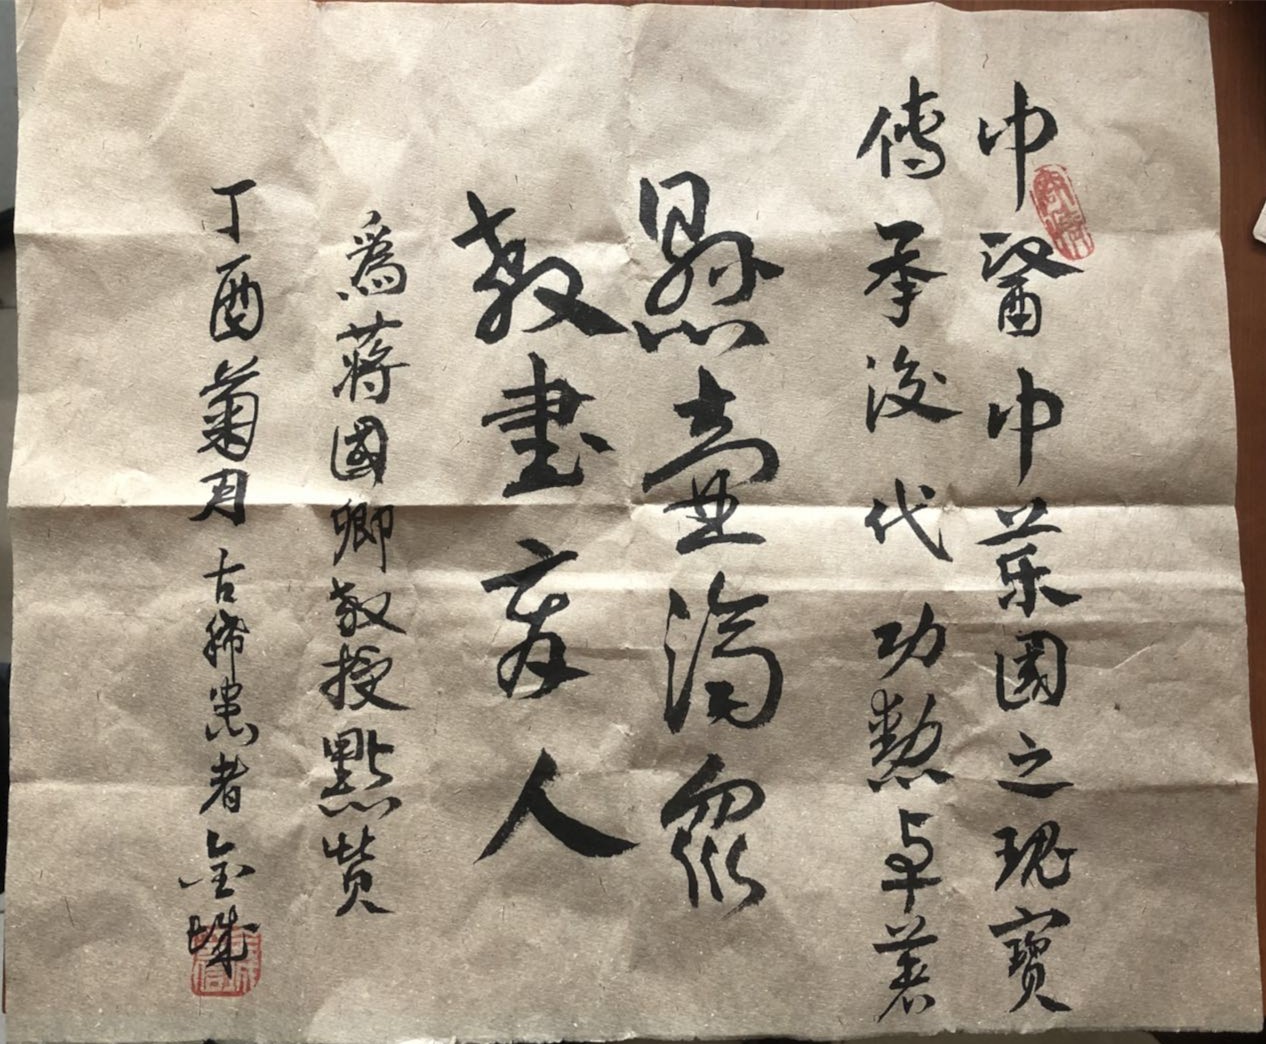 中醫中药國之瑰寶
傳承後代功勲卓著
懸壺濟眾
教書育人
為蔣國卿教授點赞
丁酉菊月古稀患者金城